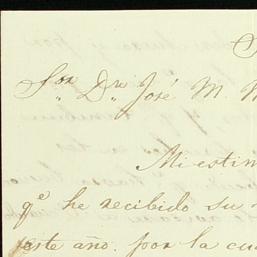 Sor. Dr. José M.
Mi estim
qe. he recibido su
este año. por la cu